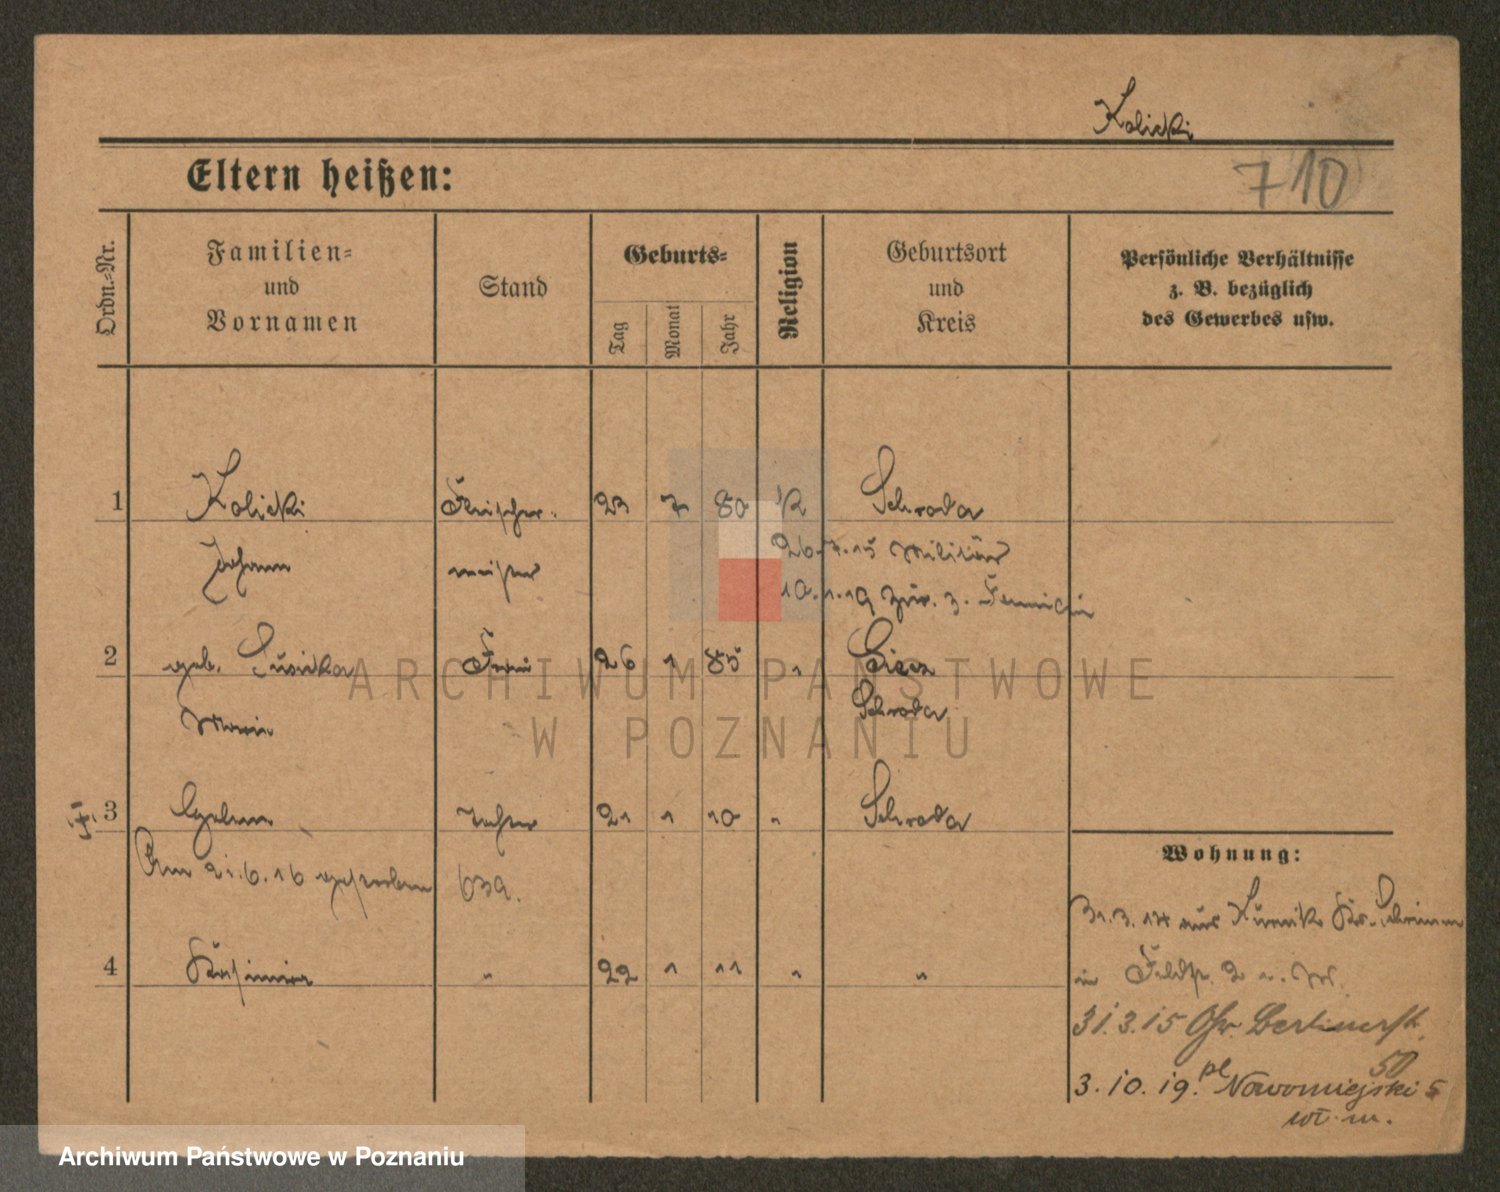 Kolicki
Eltern heißen:
710
Ordn.-Nr.
Familien-
und
Vornamen
Stand
Geburts-
Tag
Monat
Jahr
Religion
Geburtsort
und
Kreis
Persönliche Verhältnisse
z. B. bezüglich
des Gewerbes usw.
1 Kolicki Fleischer- 23 7 80 K Schroda
Johann meister 26.7.15 Militär
10.1.19 zur. z. Familie
2 geb. Frau 26 1 85 " Giecz
Maria Schroda
ARCHIWUM PAŃSTWOWE
W POZNANIU
3 Tochter 21 1 10 " Schroda
Am 21.6.16 gestorben 639.
4 Kasimira " 22 1 11 " "
Wohnung:
31.3.14 aus Kurnik Kr. Schrimm
in Feldstr. 2
31.3.15 Gr. Berlinerstr.
50
3.10.19. pl Nowomiejski 5
wł. m.
Archiwum Państwowe w Poznaniu